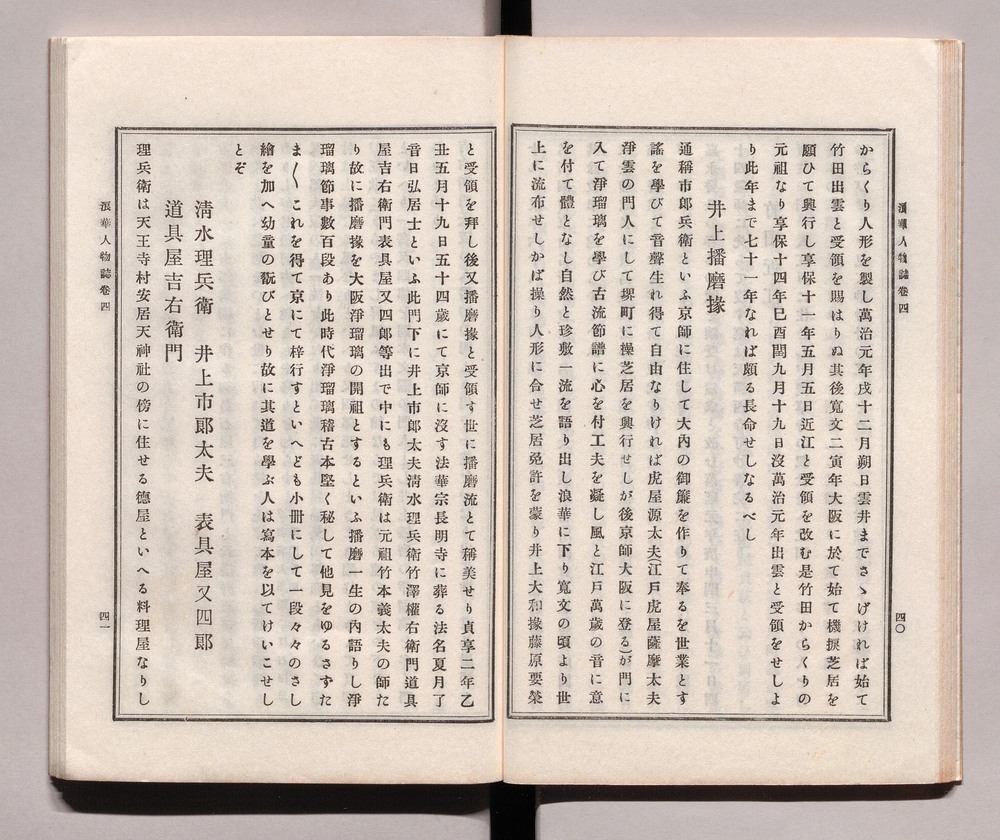 浪華人物誌卷四
四〇
からくり人形を製し萬治元年戌十二月朔日雲井までさゝげければ始て
竹田出雲と受領を賜はりぬ其後寬文二寅年大阪に於て始て機捩芝居を
願ひて興行し享保十一年五月五日近江と受領を改む是竹田からくりの
元祖なり享保十四年巳酉閏九月十九日沒萬治元年出雲と受領をせしよ
り此年まで七十一年なれば頗る長命せしなるべし
井上播磨掾
通稱市郞兵衞といふ京師に住して大內の御簾を作りて奉るを世業とす
謠を學びて音聲生れ得て自由なりければ虎屋源太夫(江戶虎屋薩摩太夫
淨雲の門人にして堺町に操芝居を興行せしが後京師大阪に登る)が門に
入て淨瑠璃を學び古流節譜に心を付工夫を凝し風と江戶萬歲の音に意
を付て體となし自然と珍敷一流を語り出し浪華に下り寬文の頃より世
上に流布せしかば操り人形に合せ芝居免許を蒙り井上大和掾藤原要榮
と受領を拜し後又播磨掾と受領す世に播磨流とて稱美せり貞享二年乙
丑五月十九日五十四歲にて京師に沒す法華宗長明寺に葬る法名夏月了
音日弘居士といふ此門下に井上市郞太夫淸水理兵衞竹澤權右衞門道具
屋吉右衞門表具屋又四郞等出で中にも理兵衞は元祖竹本義太夫の師た
り故に播磨掾を大阪淨瑠璃の開祖とするといふ播磨一生の內語りし淨
瑠璃節事數百段あり此時代淨瑠璃稽古本堅く秘して他見をゆるさずた
ま〱これを得て京にて梓行すといへども小冊にして一段々々のさし
繪を加へ幼童の翫びとせり故に其道を學ぶ人は寫本を以てけいこせし
とぞ
淸水理兵衞 井上市郞太夫 表具屋又四郞
道具屋吉右衞門
理兵衞は天王寺村安居天神社の傍に住せる德屋といへる料理屋なりし
浪華人物誌卷四
四一